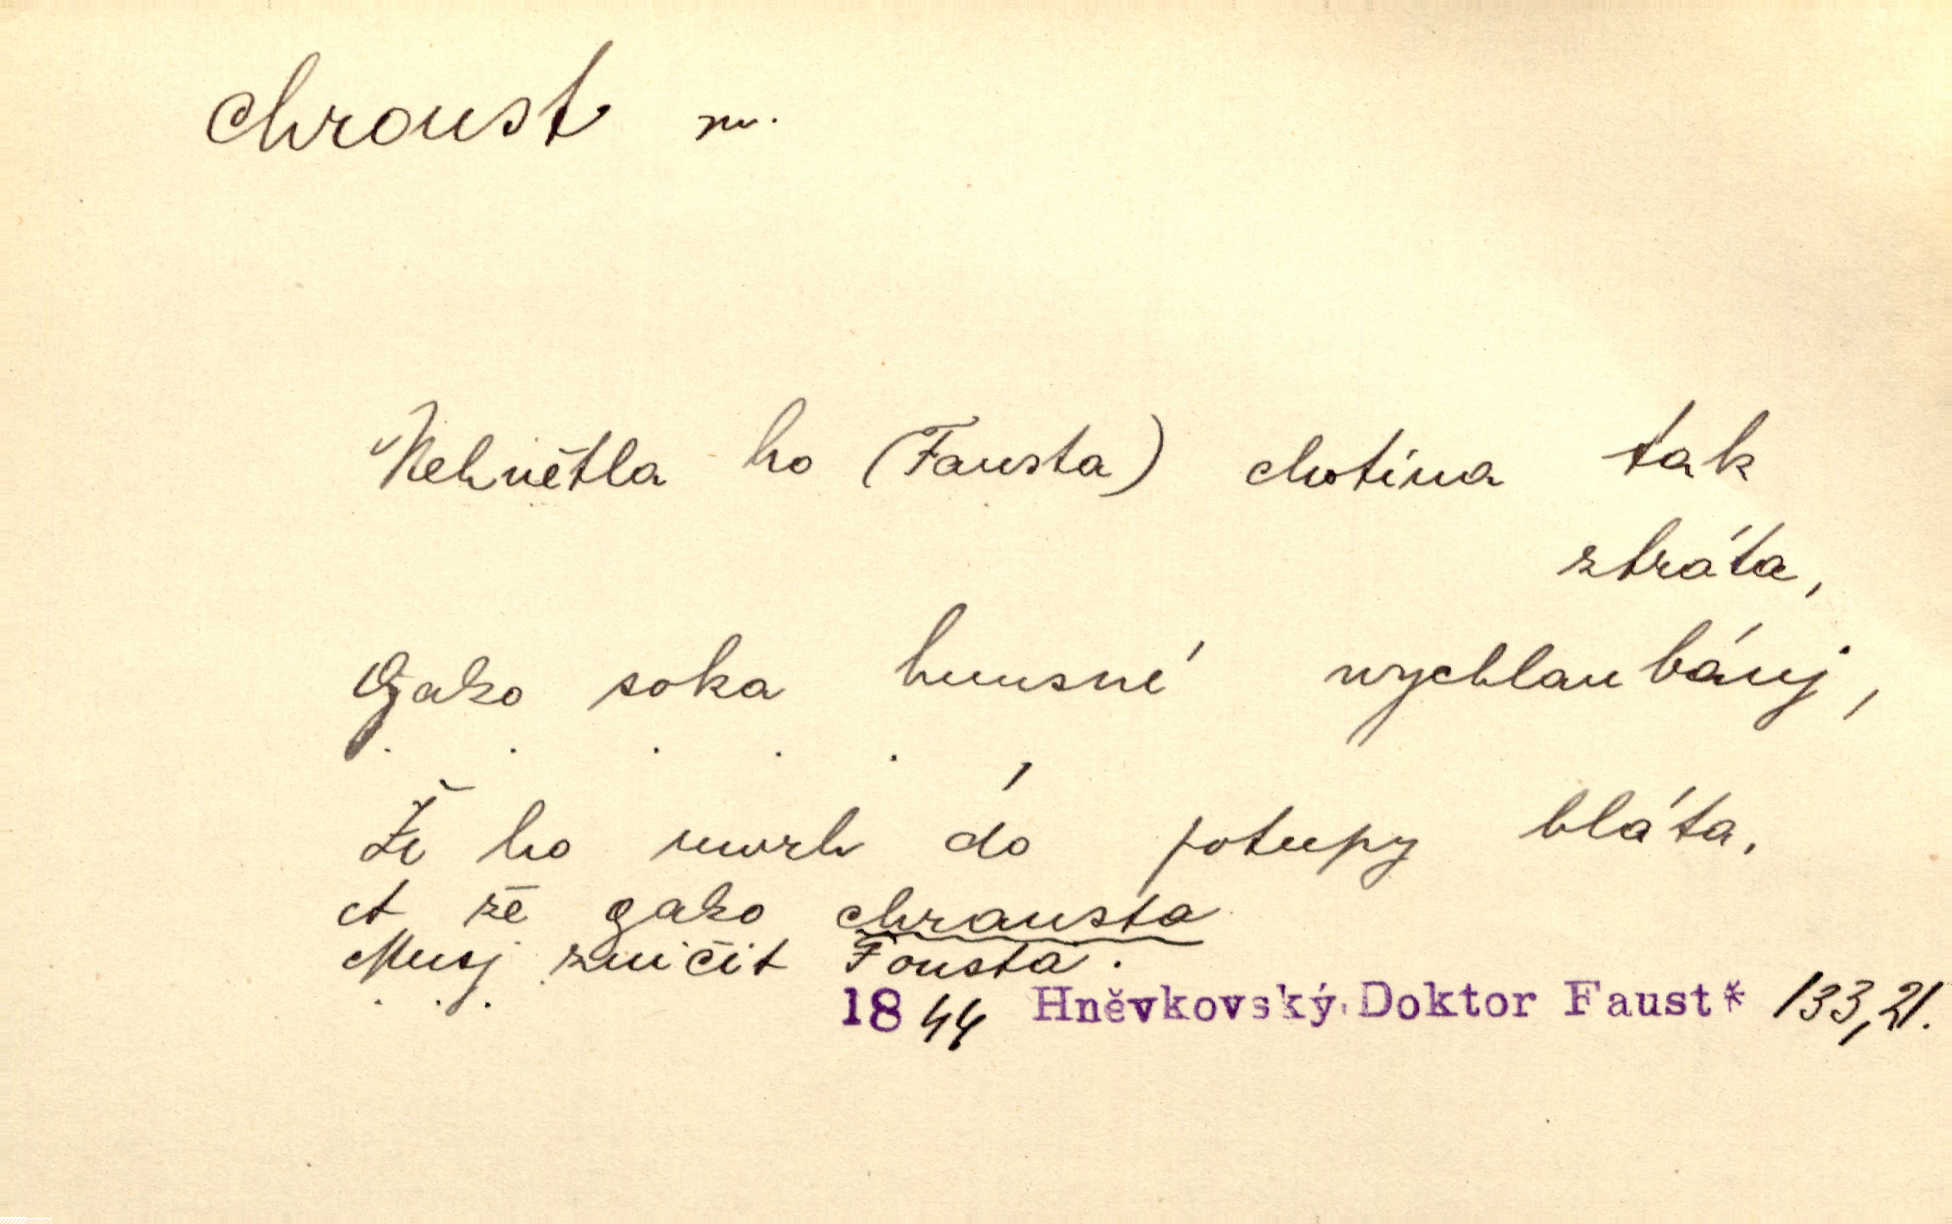 chroust m.
Nehnětla ho (Fausta) chotina tak
ztráta,
Gako soka hnusné wychlaubánj,
. . . . .
Že ho uwrh do potupy bláta,
A že gako chrausta
Musj zničit Fousta.
. . .
1844 Hněvkovský, Doktor Faust* 133,21.